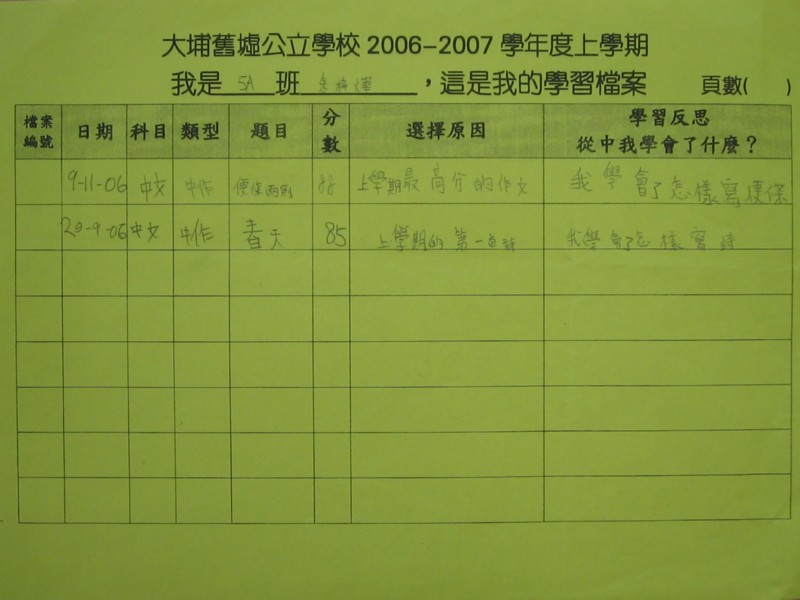 大埔舊墟公立學校 2006-2007 學年度上學期
我是 5A 班，這是我的學習檔案 頁數( )
檔案編號 日期 科目 類型 題目 分數 選擇原因 學習反思 從中我學會了什麼？
9-11-06 中文 中作 88 上學期最高分的作文 我學會了怎樣寫便條
29-9-06 中文 中作 春天 85 上學期的第一首詩 我學會了怎樣寫詩